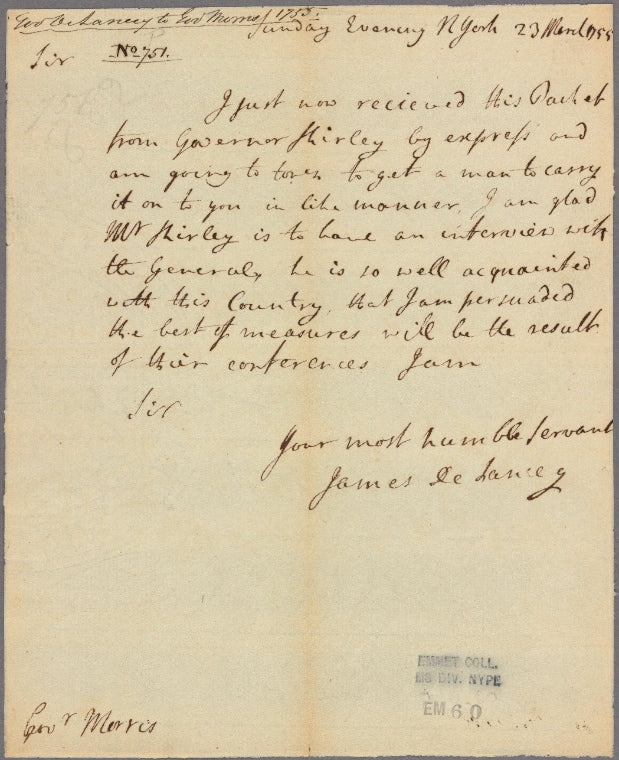 Gov De Lancey to Gov Morris 1755
Sunday Evening N York 23 March 1755
No 751.
Sir
I just now recieved this Packet
from Governor Shirley by express and
am going to town to get a man to carry
it on to you in like manner, I am glad
Mr Shirley is to have an interview with
the General, he is so well acquainted
with this Country, that I am persuaded
the best of measures will be the result
of their conferences I am
Sir
Your most humble Servant
James De Lancey
EMMET COLL.
MS DIV. NYPL
EM 60
Govr Morris